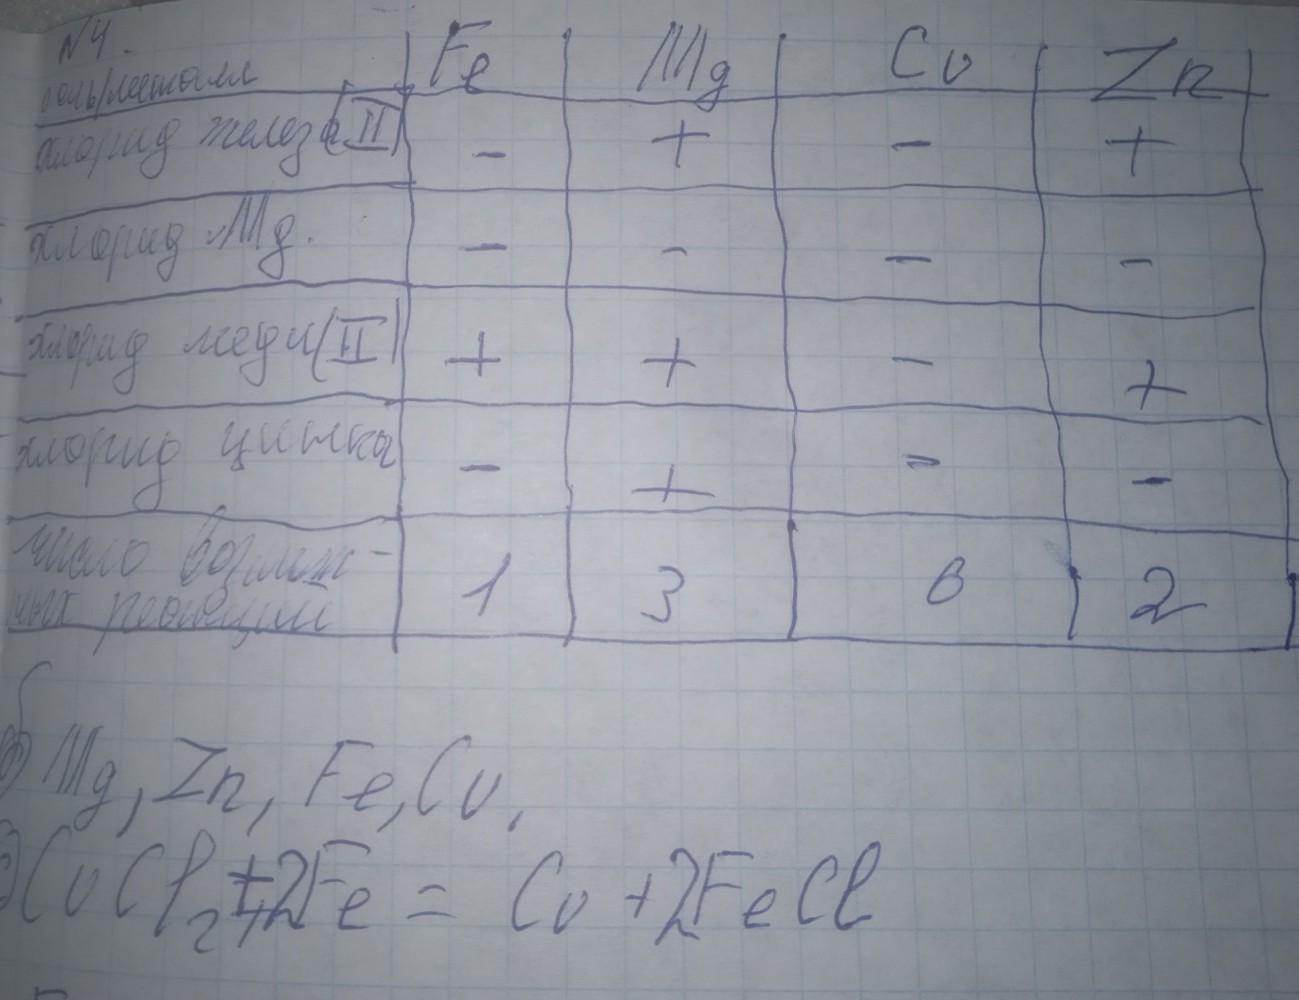 №4.
соль/металл Fe Mg Cu Zn
хлорид железа (II) - + - +
хлорид Mg. - - - -
хлорид меди (II) + + - +
хлорид цинка - + - -
число возмож-
ных реакций 1 3 0 2
б) Mg, Zn, Fe, Cu.
CuCl2 + 2Fe = Cu + 2FeCl